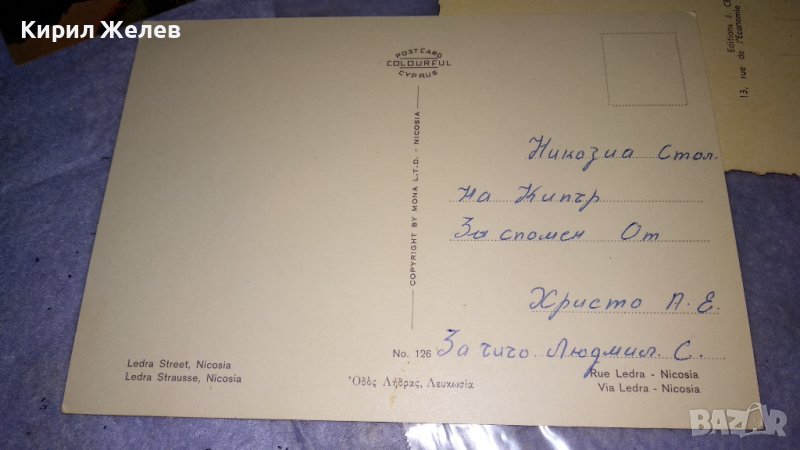 Кирил Желев
POST CARD
COLOURFUL
CYPRUS
Editions J. CE
13, rue de l'Economie
COPYRIGHT BY MONA L.T.D. · NICOSIA
Никозиа Стол.
на Кипър
За спомен От
Христо П. Е.
За чичо Людмил С.
No. 126
Ledra Street, Nicosia
Ledra Strausse, Nicosia
Ὁδὸς Λήδρας, Λευκωσία
Rue Ledra - Nicosia
Via Ledra - Nicosia
BAZAR